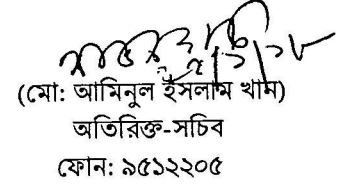 (মো: আমিনুল ইসলাম খান)
অতিরিক্ত-সচিব
ফোন: ৯৫১২২০৫